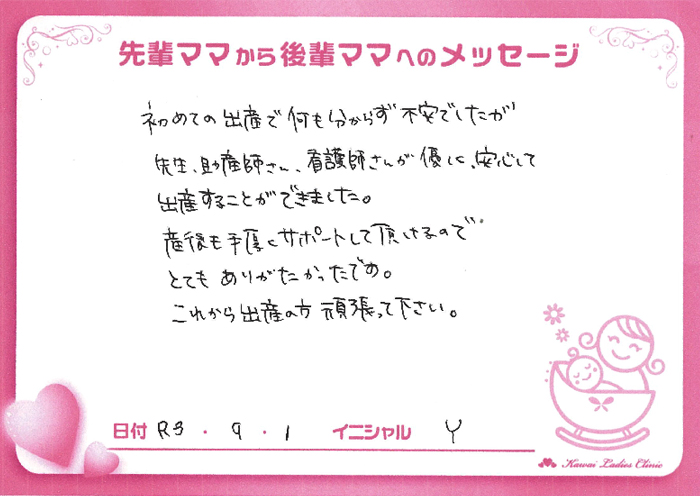 先輩ママから後輩ママへのメッセージ
初めての出産で何も分からず不安でしたが
先生、助産師さん、看護師さんが優しく、安心して
出産することができました。
産後も手厚くサポートして頂けるので
とてもありがたかったです。
これから出産の方頑張って下さい。
日付 R3・9・1 イニシャル Y
Kawai Ladies Clinic